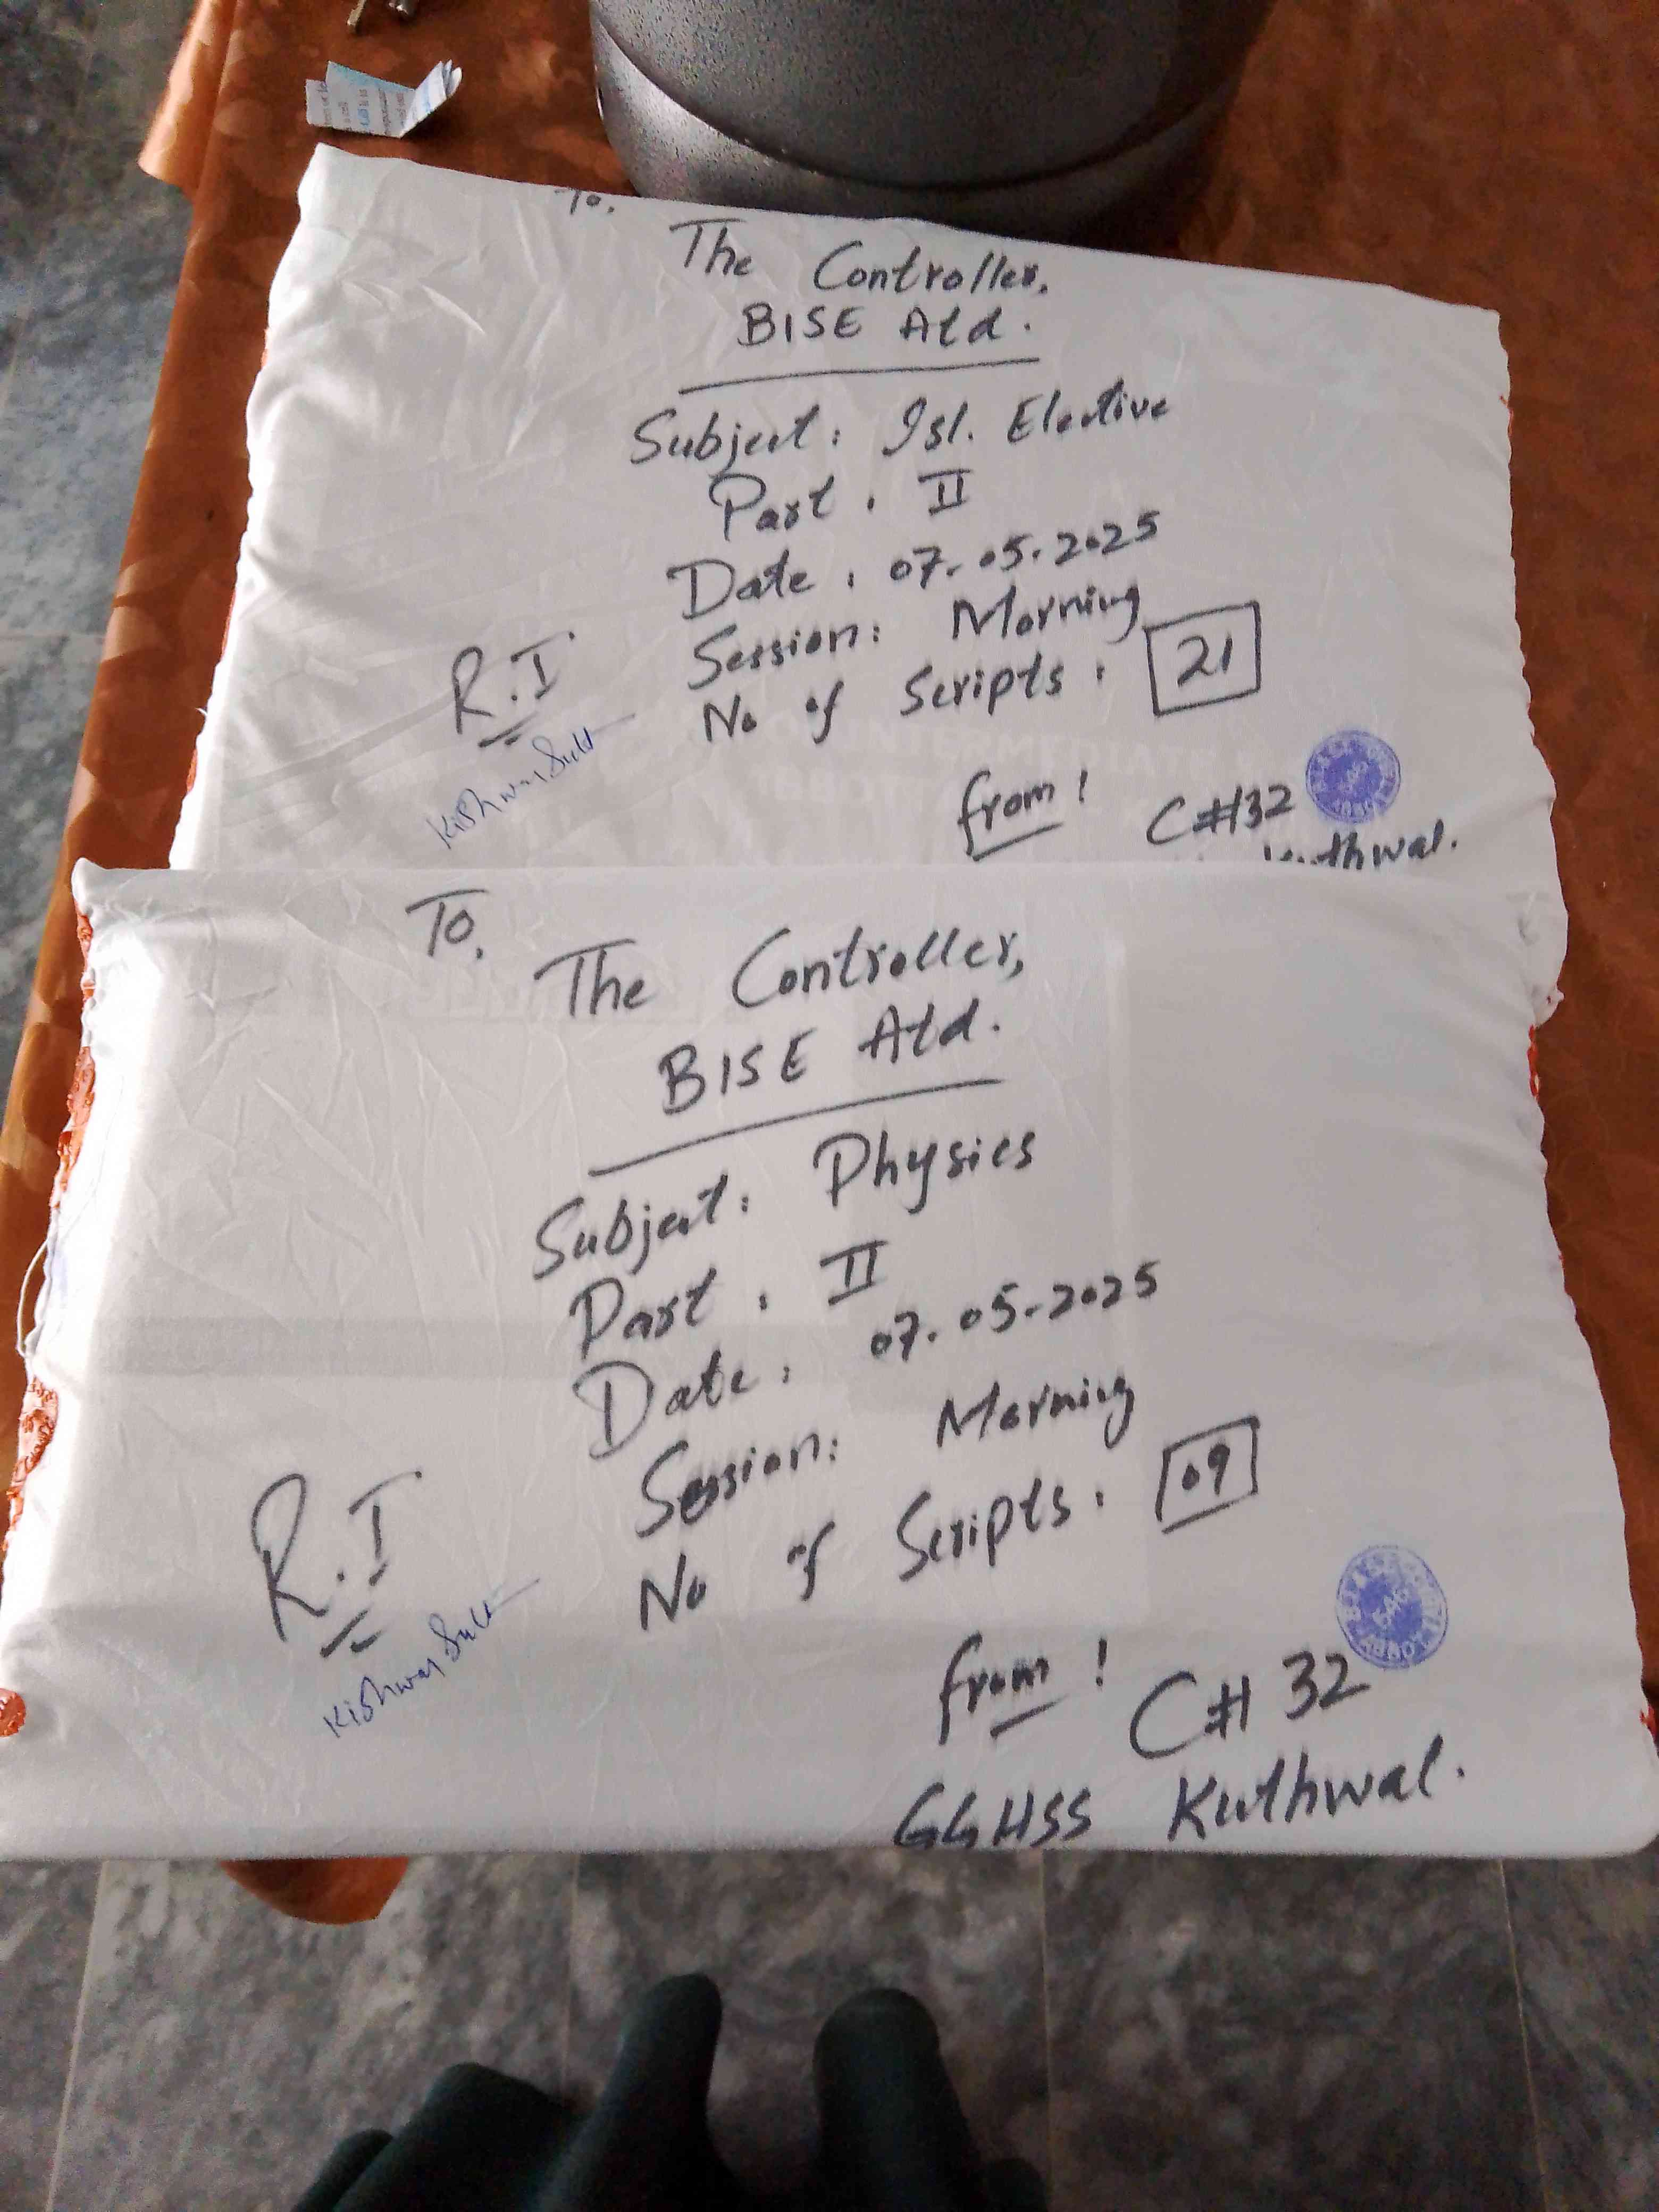 To,
The Controller,
BISE Atd.
Subject: Isl. Elective
Part : II
Date : 07.05.2025
Session: Morning
No of Scripts : 21
R.I
Kishwar
from!
C#32
To,
The Controller,
BISE Atd.
Subject: Physics
Part : II
Date : 07.05-2025
Session: Morning
No of Scripts : 09
R.I
Kishwar
from!
C# 32
GGHSS Kuthwal.